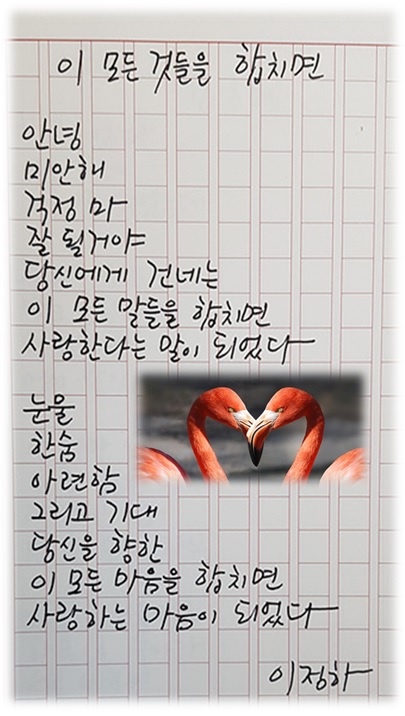 이 모든 것들을 합치면
안녕
미안해
걱정 마
잘 될거야
당신에게 건네는
이 모든 말들을 합치면
사랑한다는 말이 되었다
눈물
한숨
아련함
그리고 기대
당신을 향한
이 모든 마음을 합치면
사랑하는 마음이 되었다
이정하